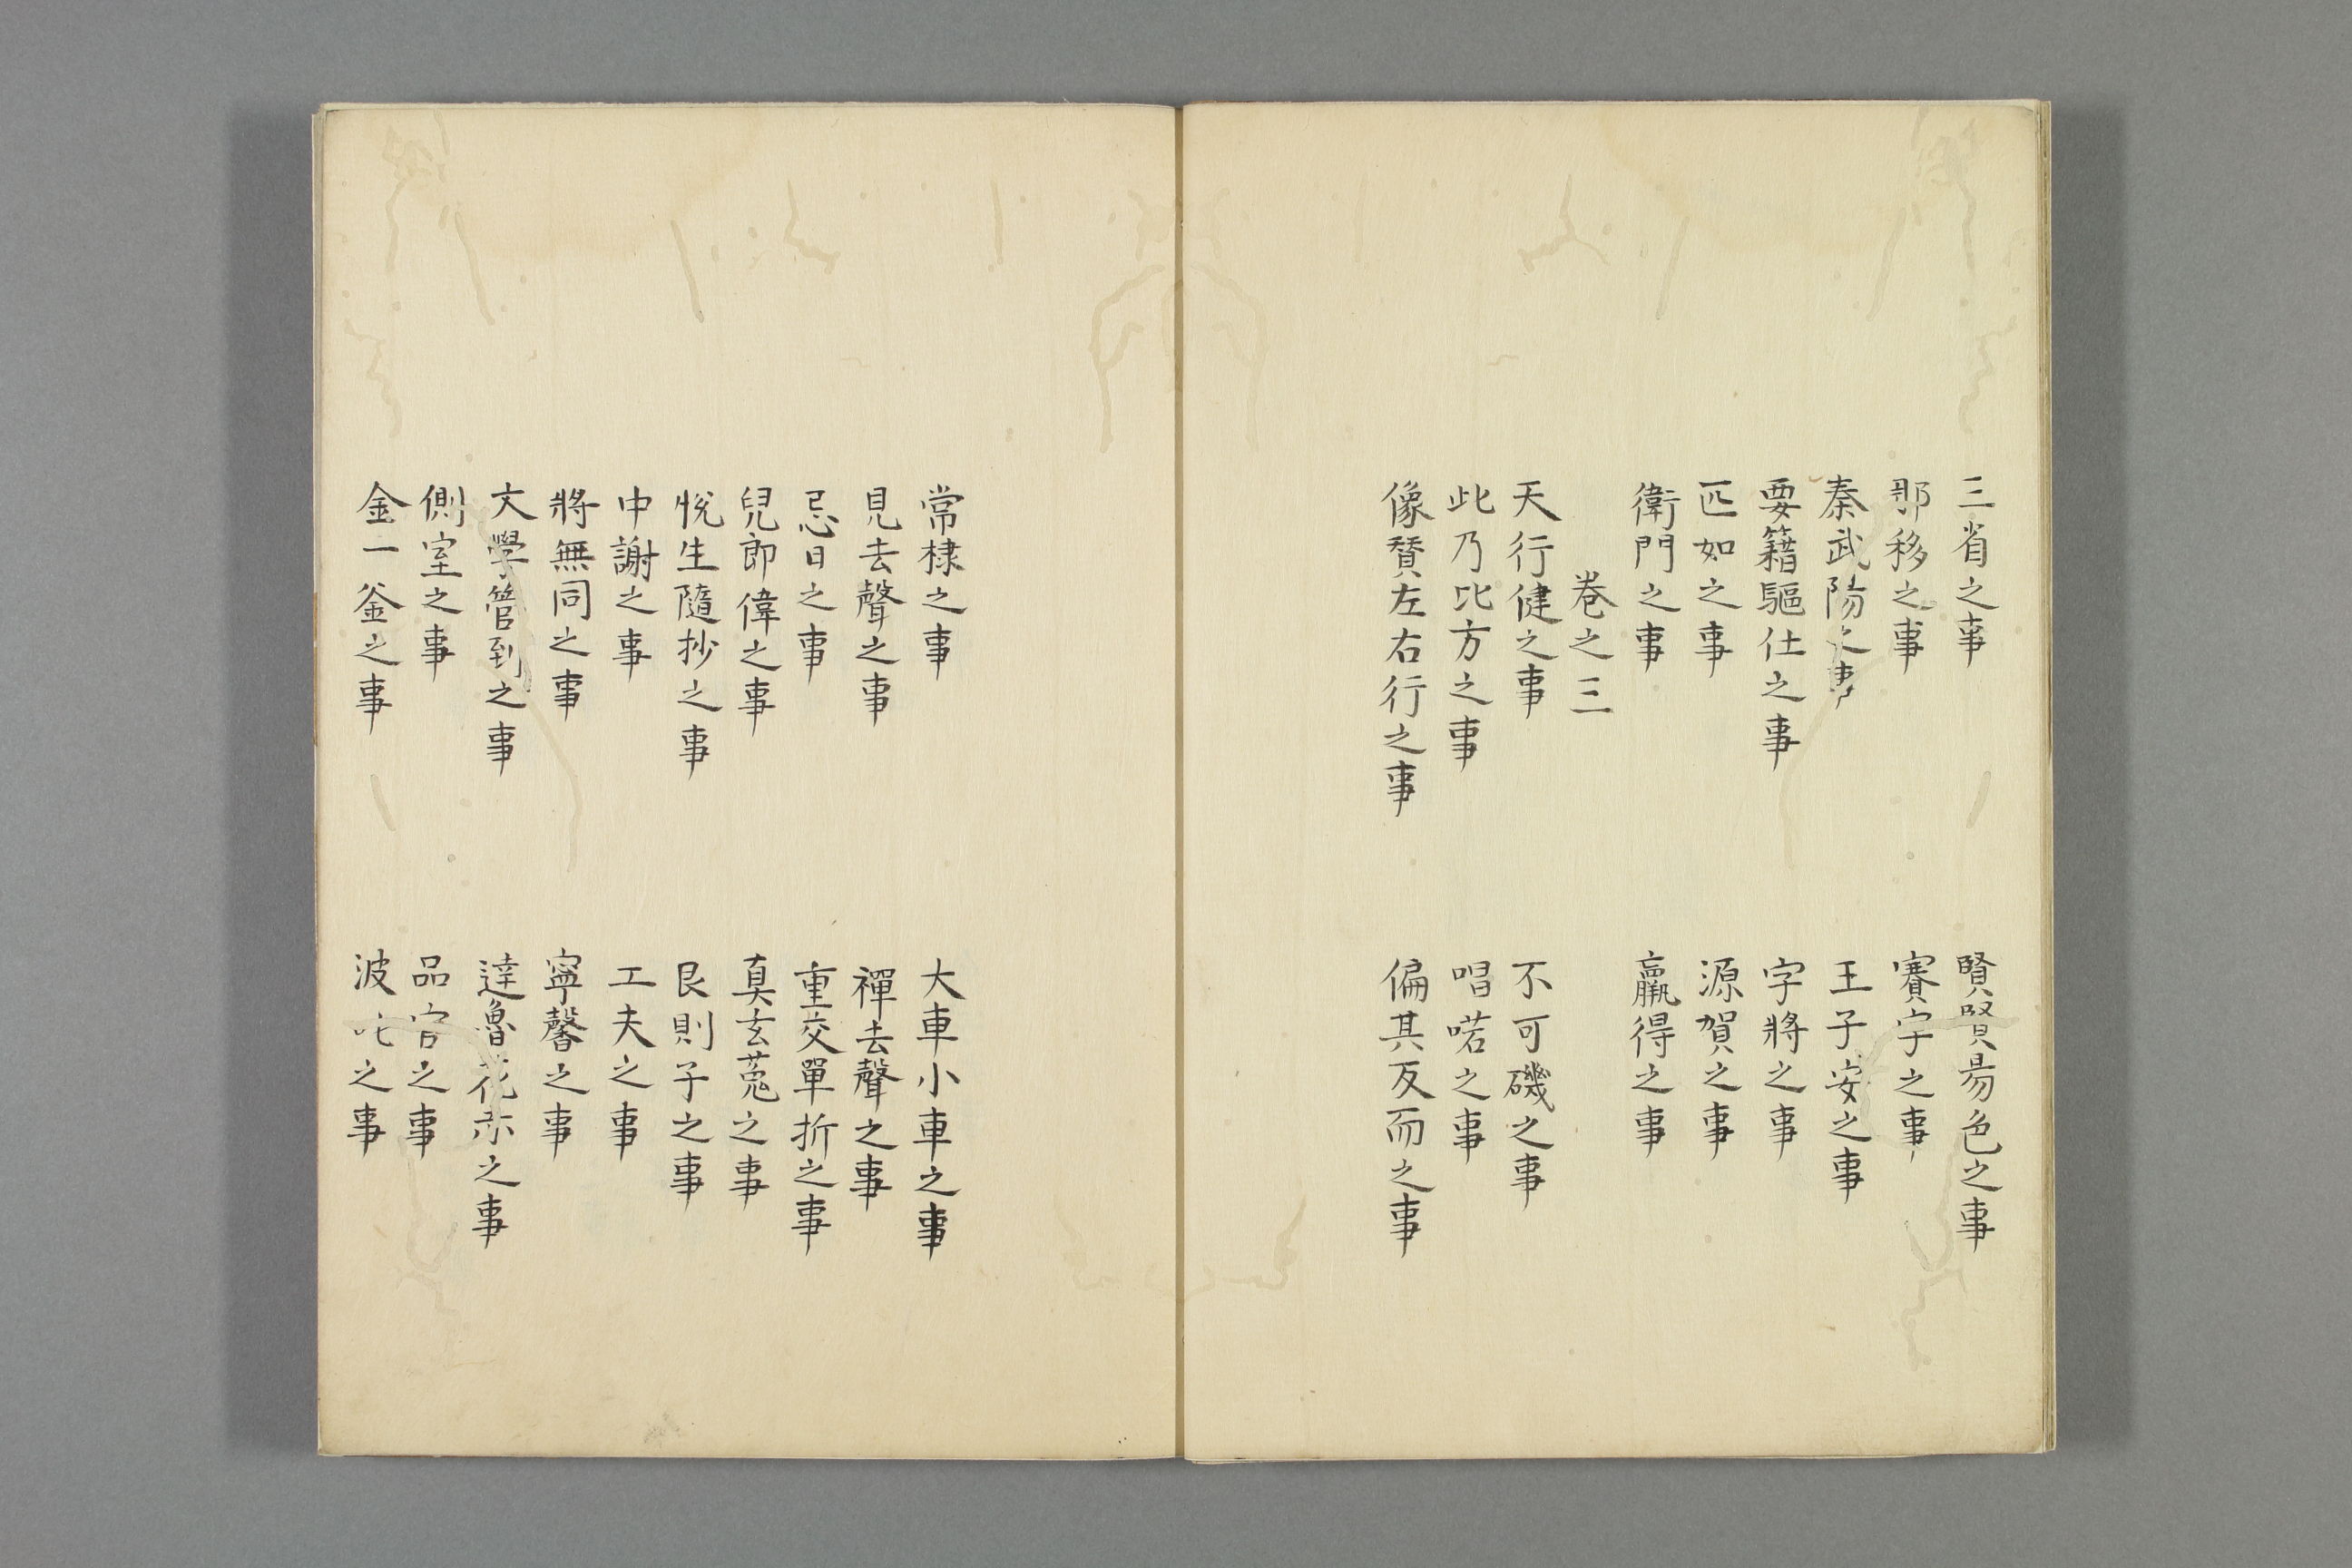 三省之事
賢賢易色之事
那移之事
賽字之事
秦武陽之事
王子安之事
要籍驅仕之事
字將之事
匹如之事
源賀之事
衛門之事
羸得之事
巻之三
天行健之事
不可磯之事
此乃比方之事
唱喏之事
像賛左右行之事
偏其反而之事
常棣之事
大車小車之事
見去聲之事
禪去聲之事
忌日之事
重交單折之事
兒郎偉之事
真玄菟之事
悅生隨抄之事
艮則子之事
中謝之事
工夫之事
將無同之事
寧馨之事
文學管到之事
達魯花赤之事
側室之事
品官之事
金一釜之事
波叱之事